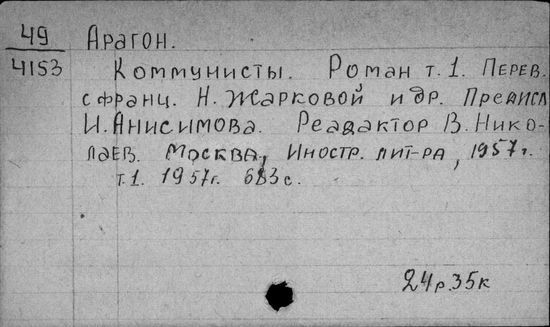 49 Арагон.
4153 Коммунисты. Роман т.1. Перев.
с франц. Н. Жарковой и др. Предисл
И. Анисимова. Реадактор В. Нико-
лаев. Москва, Иностр. лит-ра, 1957г.
т.1. 1957г. 683 с.
24р.35к